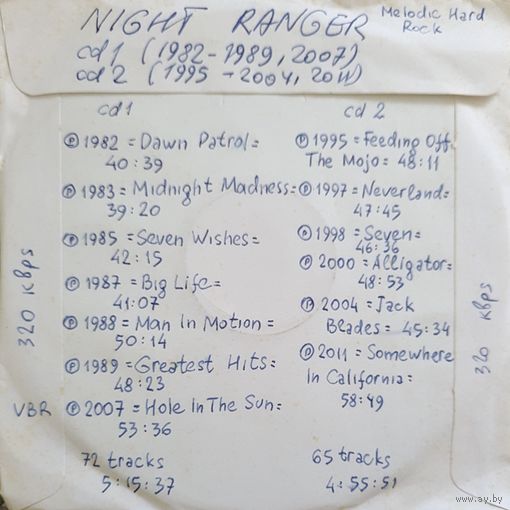 NIGHT RANGER
Melodic Hard
Rock
cd1 (1982-1989, 2007)
cd2 (1995-2004, 2011)
cd1
℗ 1982 = Dawn Patrol =
40:39
℗ 1983 = Midnight Madness =
39:20
℗ 1985 = Seven Wishes =
42:15
℗ 1987 = Big Life =
41:07
℗ 1988 = Man In Motion =
50:14
℗ 1989 = Greatest Hits =
48:23
VBR ℗ 2007 = Hole In The Sun =
53:36
72 tracks
5:15:37
320 kBps
cd 2
℗ 1995 = Feeding Off
The Mojo = 48:11
℗ 1997 = Neverland =
47:45
℗ 1998 = Seven =
46:36
℗ 2000 = Alligator =
48:53
℗ 2004 = Jack
Blades = 45:34
℗ 2011 = Somewhere
In California =
58:49
65 tracks
4:55:51
320 kBps
www.ay.by